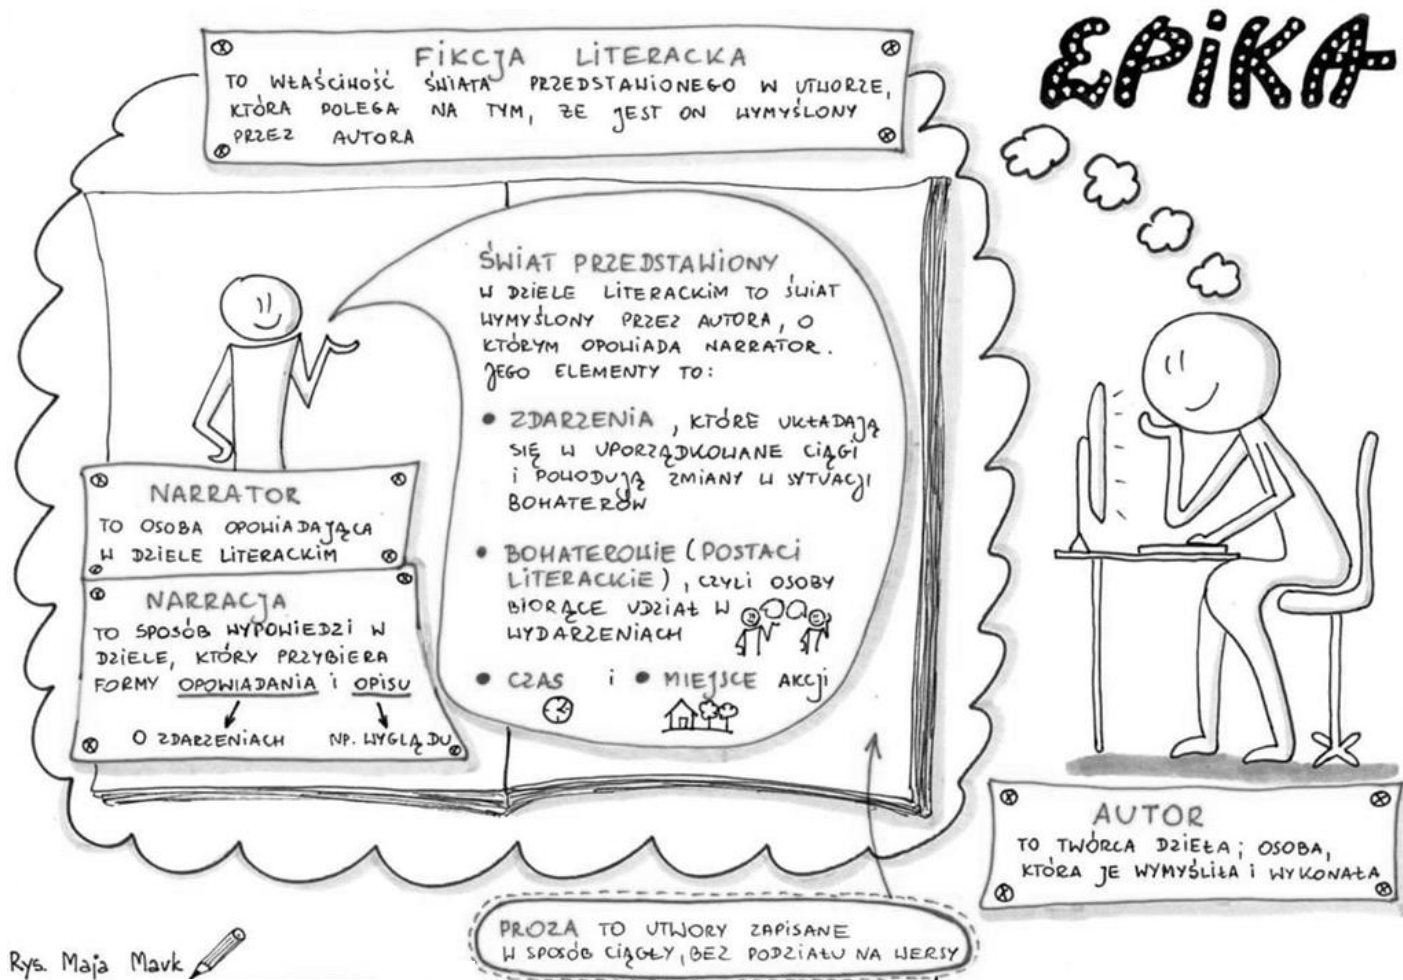 EPIKA
FIKCJA LITERACKA
TO WŁAŚCIWOŚĆ ŚWIATA PRZEDSTAWIONEGO W UTWORZE,
KTÓRA POLEGA NA TYM, ŻE JEST ON WYMYŚLONY
PRZEZ AUTORA
ŚWIAT PRZEDSTAWIONY
W DZIELE LITERACKIM TO ŚWIAT
WYMYŚLONY PRZEZ AUTORA, O
KTÓRYM OPOWIADA NARRATOR.
JEGO ELEMENTY TO:
• ZDARZENIA, KTÓRE UKŁADAJĄ
SIĘ W UPORZĄDKOWANE CIĄGI
I POWODUJĄ ZMIANY W SYTUACJI
BOHATERÓW
• BOHATEROWIE (POSTACI
LITERACKIE), CZYLI OSOBY
BIORĄCE UDZIAŁ W
WYDARZENIACH
• CZAS i • MIEJSCE AKCJI
NARRATOR
TO OSOBA OPOWIADAJĄCA
W DZIELE LITERACKIM
NARRACJA
TO SPOSÓB WYPOWIEDZI W
DZIELE, KTÓRY PRZYBIERA
FORMY OPOWIADANIA i OPISU
O ZDARZENIACH NP. WYGLĄDU
AUTOR
TO TWÓRCA DZIEŁA; OSOBA,
KTÓRA JE WYMYŚLIŁA i WYKONAŁA
PROZA TO UTWORY ZAPISANE
W SPOSÓB CIĄGŁY, BEZ PODZIAŁU NA WERSY
Rys. Maja Mavk